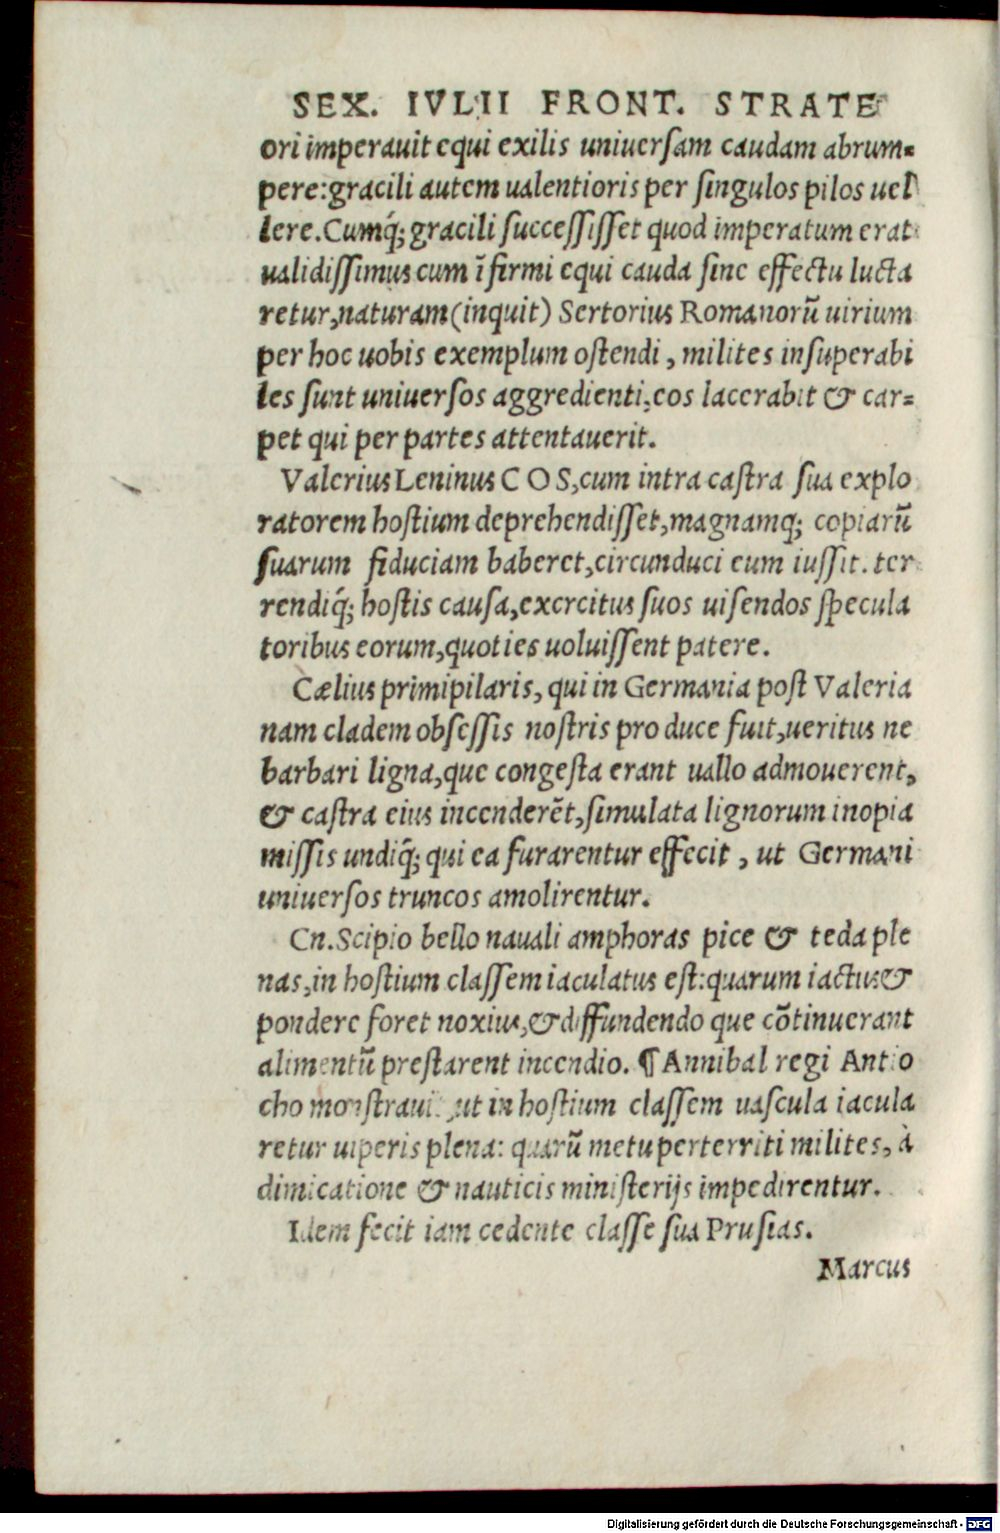 SEX. IVLII FRONT. STRATE
ori imperauit equi exilis uniuersam caudam abrum-
pere:gracili autem ualentioris per singulos pilos uel
lere.Cumq́; gracili successisset quod imperatum erat
ualidissimus cum ĩfirmi equi cauda sine effectu lucta
retur,naturam(inquit) Sertorius Romanorũ uirium
per hoc uobis exemplum ostendi, milites insuperabi
les sunt uniuersos aggredienti,eos lacerabit & car=
pet qui per partes attentauerit.
Valerius Leninus C O S,cum intra castra sua explo
ratorem hostium deprehendisset,magnamq; copiarũ
suarum fiduciam baberet,circunduci eum iussit. ter
rendiq́; hostis causa,exercitus suos uisendos specula
toribus eorum,quoties uoluissent patere.
Cælius primipilaris, qui in Germania post Valeria
nam cladem obsessis nostris pro duce fuit,ueritus ne
barbari ligna,que congesta erant uallo admouerent,
& castra eius incenderẽt,simulata lignorum inopia
missis undiq́; qui ea furarentur effecit, ut Germani
uniuersos truncos amolirentur.
Cn.Scipio bello nauali amphoras pice & teda ple
nas,in hostium classem iaculatus est:quarum iactus &
pondere foret noxius,& diffundendo que cõtinuerant
alimentũ prestarent incendio. ¶ Annibal regi Antio
cho monstrauit ut in hostium classem uascula iacula
retur uiperis plena: quarũ metu perterriti milites, à
dimicatione & nauticis ministerijs impedirentur.
Idem fecit iam cedente classe sua Prusias.
Marcus
Digitalisierung gefördert durch die Deutsche Forschungsgemeinschaft - DFG